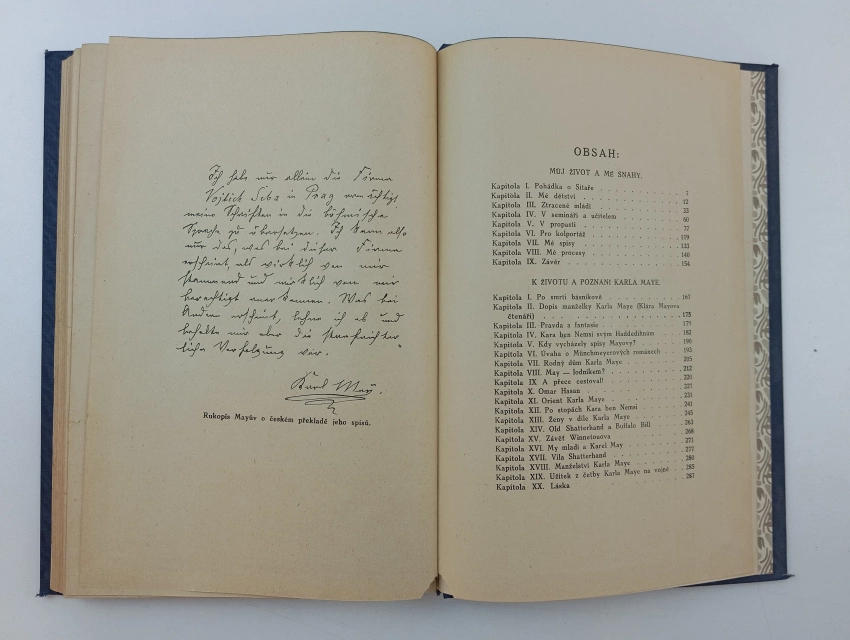 Ich habe nur allein die Firma
Vojtěch Šeba in Prag ermächtigt,
meine Schriften in die böhmische
Sprache zu übersetzen. Ich kann also
nur das, was bei dieser Firma
erscheint, als wirklich von mir
stammend und wirklich von mir
berechtigt anerkennen. Was bei
Andern erscheint, lehne ich ab und
behalte mir aber die strafrichter-
liche Verfolgung vor."
Karl May.
Rukopis Mayův o českém překladě jeho spisů.
OBSAH:
MŮJ ŽIVOT A MÉ SNAHY.
Kapitola I. Pohádka o Sitaře 7
Kapitola II. Mé dětství 12
Kapitola III. Ztracené mládí 33
Kapitola IV. V semináři a učitelem 60
Kapitola V. V propasti 77
Kapitola VI. Pro kolportáž 119
Kapitola VII. Mé spisy 133
Kapitola VIII. Mé procesy 140
Kapitola IX. Závěr 154
K ŽIVOTU A POZNÁNÍ KARLA MAYE.
Kapitola I. Po smrti básníkově 161
Kapitola II. Dopis manželky Karla Maye (Klára Mayova
čtenáři) 175
Kapitola III. Pravda a fantasie 177
Kapitola IV. Kara ben Nemsi svým Haddedihnům 182
Kapitola V. Kdy vycházely spisy Mayovy? 190
Kapitola VI. Úvaha o Münchmeyerových románech 193
Kapitola VII. Rodný dům Karla Maye 205
Kapitola VIII. May — lodníkem? 212
Kapitola IX A přece cestoval! 220
Kapitola X. Omar Hasan 227
Kapitola XI. Orient Karla Maye 231
Kapitola XII. Po stopách Kara ben Nemsi 241
Kapitola XIII. Ženy v díle Karla Maye 245
Kapitola XIV. Old Shatterhand a Buffalo Bill 263
Kapitola XV. Závěť Winnetouova 268
Kapitola XVI. My mladí a Karel May 271
Kapitola XVII. Vila Shatterhand 277
Kapitola XVIII. Manželství Karla Maye 280
Kapitola XIX. Užitek z četby Karla Maye na vojně 285
Kapitola XX. Láska 287